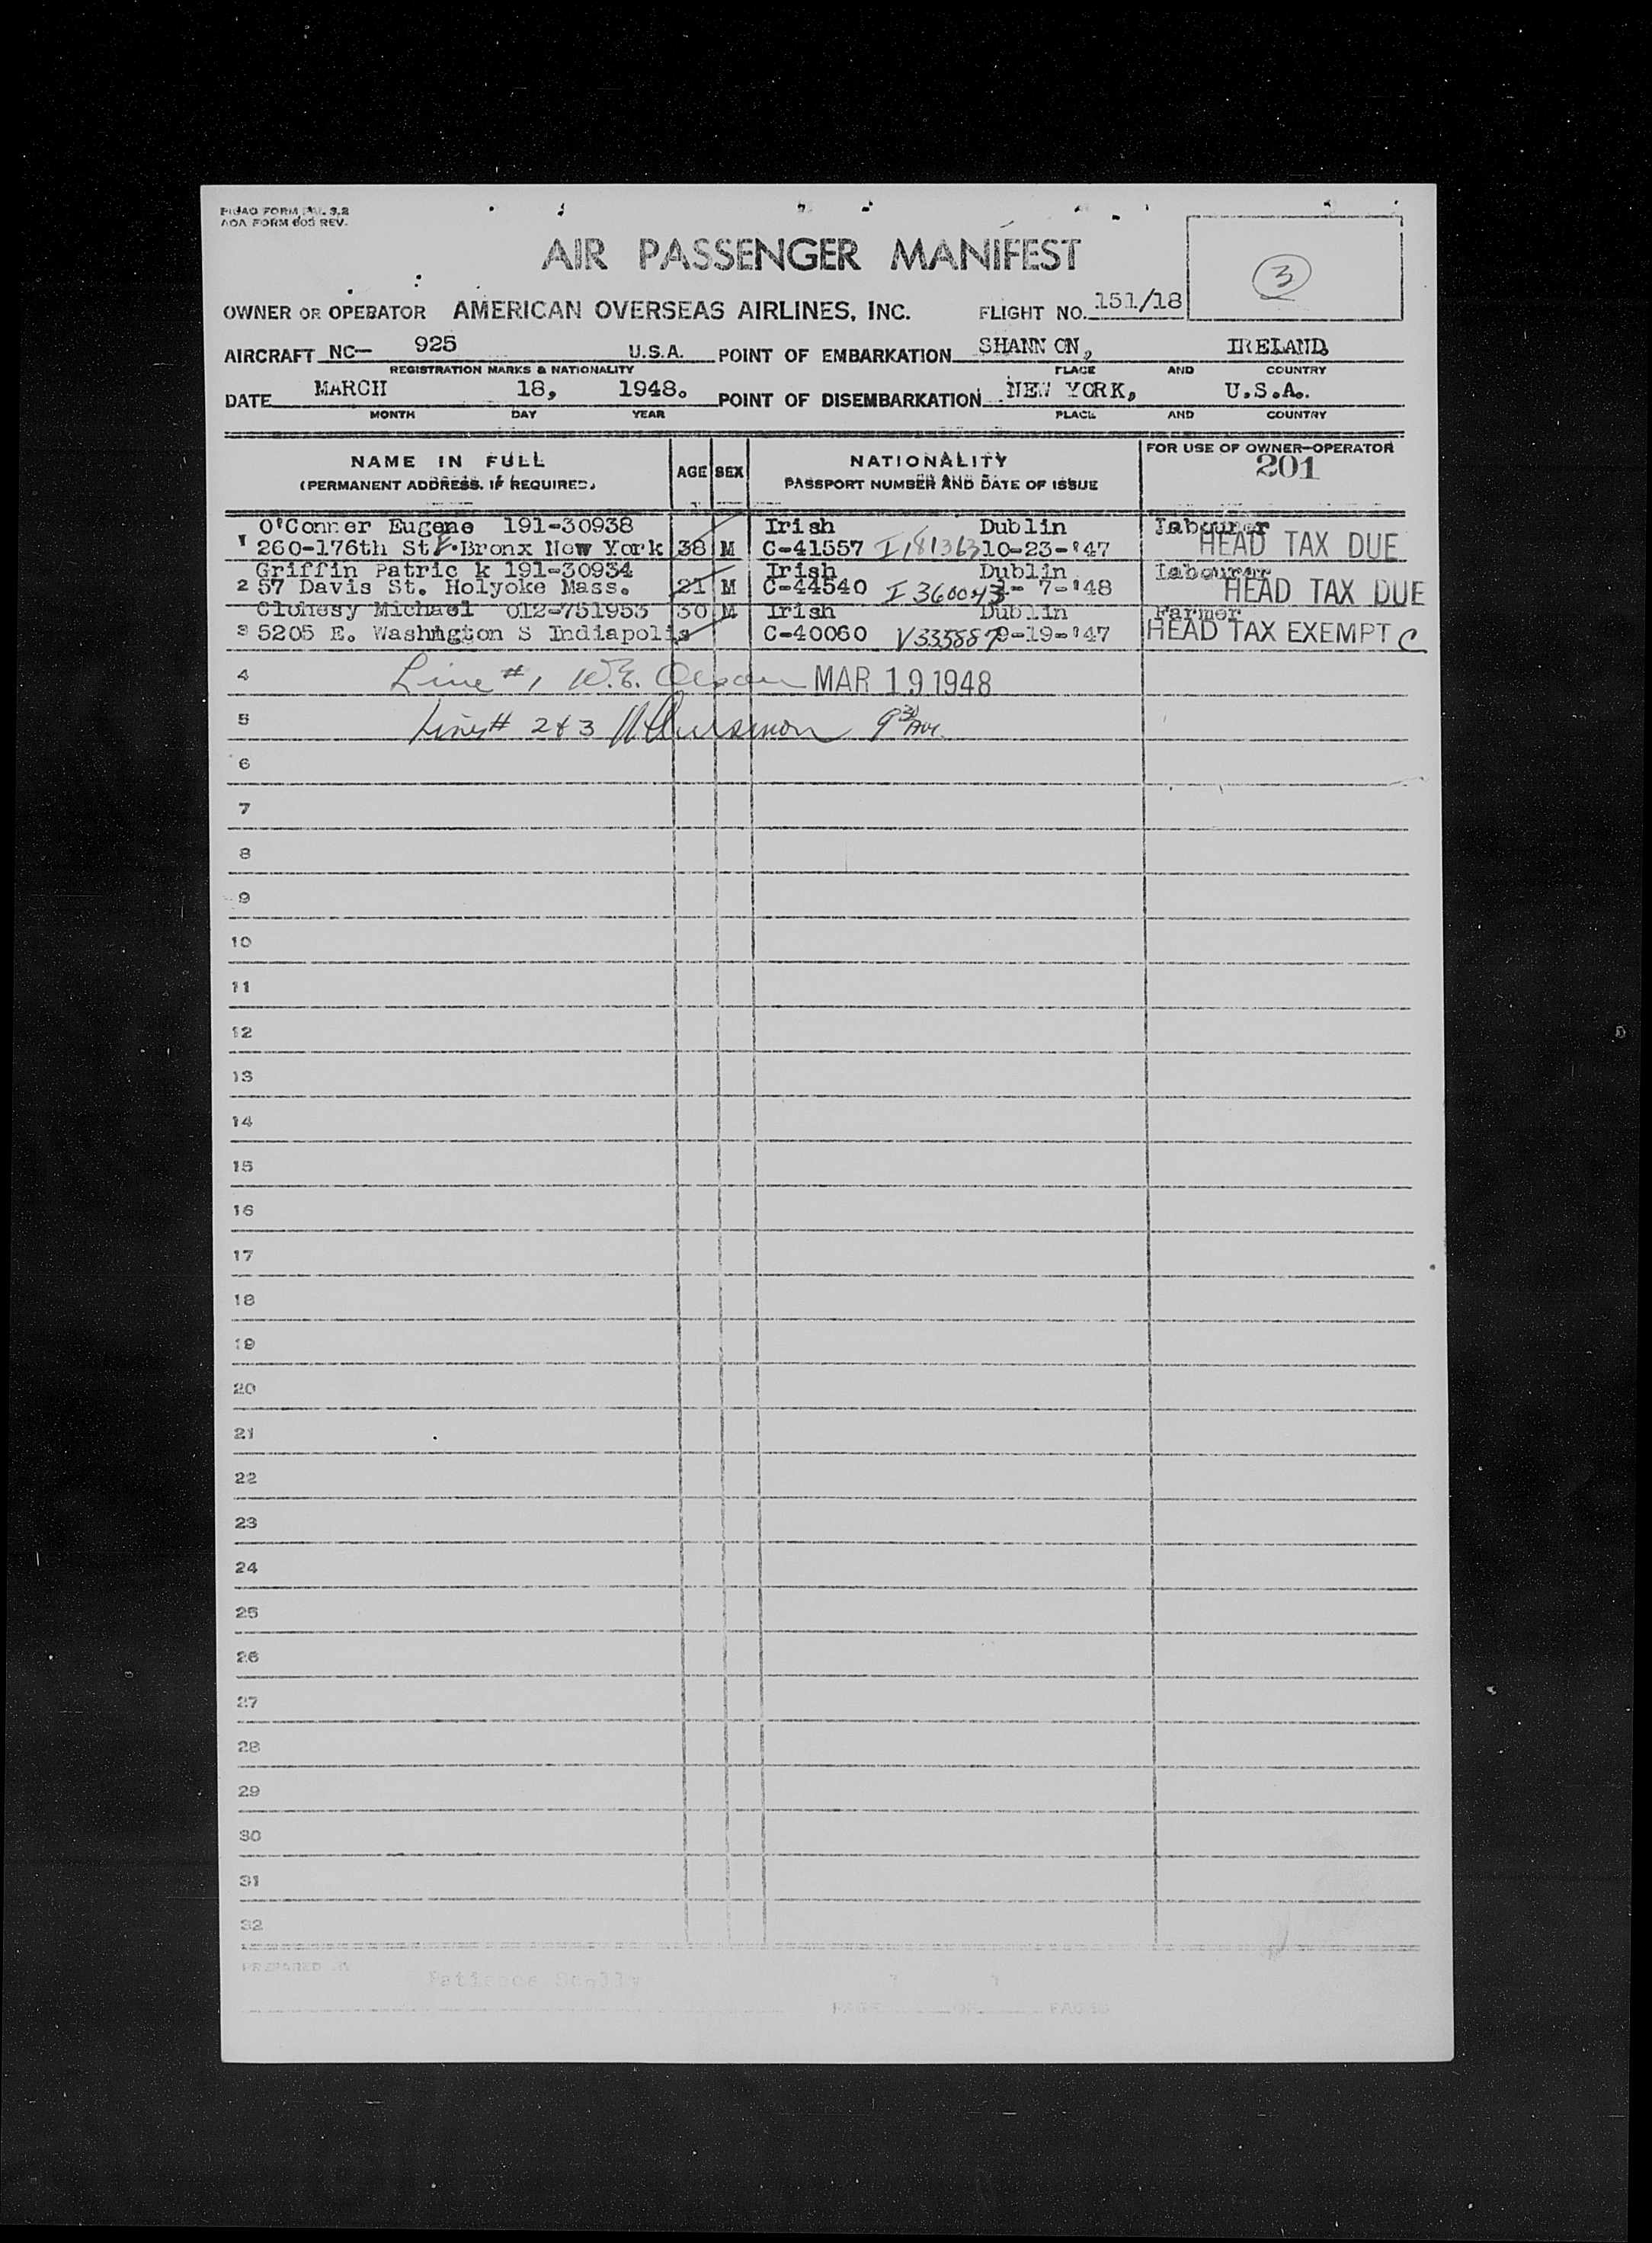 PICAO FORM PAL 3.2
AOA FORM 605 REV.
3
AIR PASSENGER MANIFEST
OWNER OR OPERATOR AMERICAN OVERSEAS AIRLINES, INC. FLIGHT NO. 151/18
AIRCRAFT NC— 925 U.S.A. POINT OF EMBARKATION SHANN ON, IRELAND
REGISTRATION MARKS & NATIONALITY PLACE AND COUNTRY
DATE MARCH 18, 1948. POINT OF DISEMBARKATION NEW YORK, U.S.A.
MONTH DAY YEAR PLACE AND COUNTRY
NAME IN FULL AGE SEX NATIONALITY FOR USE OF OWNER-OPERATOR
(PERMANENT ADDRESS, IF REQUIRED) PASSPORT NUMBER AND DATE OF ISSUE 201
O'Conner Eugene 191-30938 Irish Dublin Labourer
1 260-176th St E. Bronx New York 38 M C-41557 I181363 10-23-'47 HEAD TAX DUE
Griffin Patric k 191-30934 Irish Dublin Labourer
2 57 Davis St. Holyoke Mass. 21 M C-44540 I 360043 - 7-'48 HEAD TAX DUE
Clohesy Michael 012-751953 30 M Irish Dublin Farmer
3 5205 E. Washington S Indiapolis C-40060 V335887 9-19-'47 HEAD TAX EXEMPT C
4 Line #1 W.E. MAR 19 1948
5 Line# 2 & 3
6
7
8
9
10
11
12
13
14
15
16
17
18
19
20
21
22
23
24
25
26
27
28
29
30
31
32
PREPARED BY Patience Scully
PAGE OF PAGES